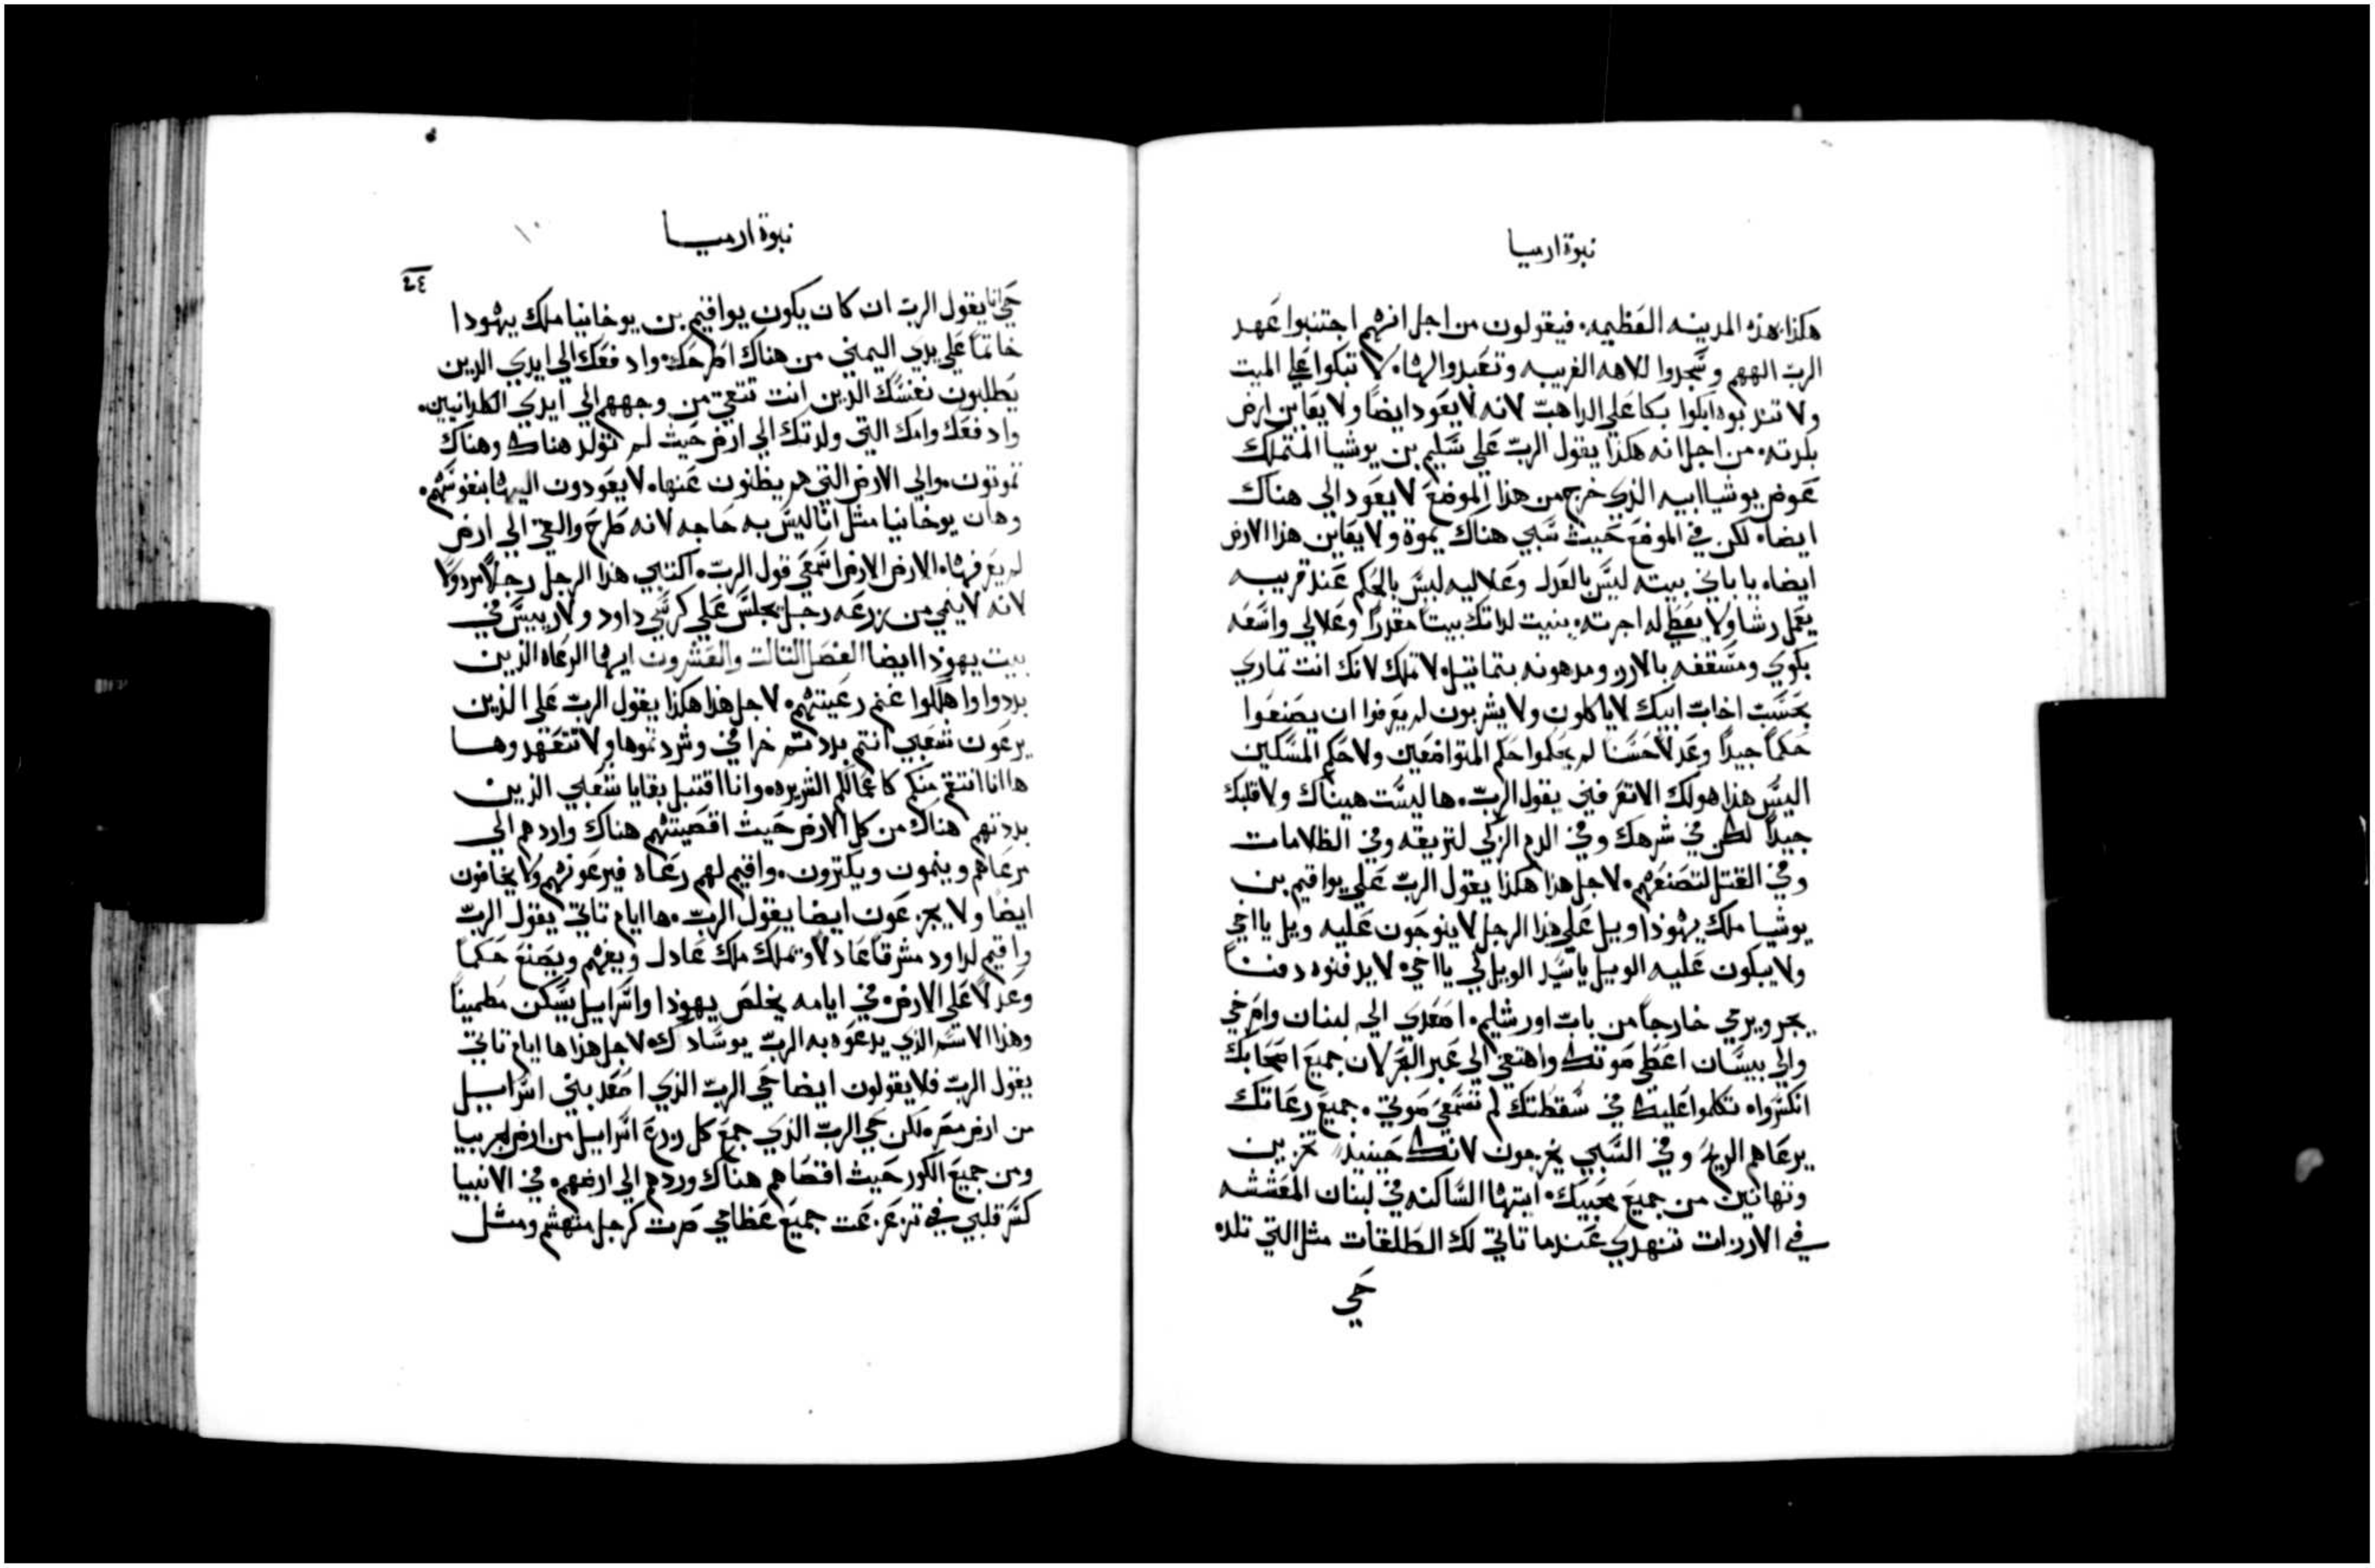 نبوة ارميا
هكذا، هذه المدينه العَظيمه. فيقولون من اجل انهم اجتنبوا عَهد
الربّ الههم وسَجدوا لالهه الغريبه وتعَبدوا لها. لا تبكوا عَلي الميت
ولا تندبوه ابكوا بكا عَلي الداهبّ لانه لا يعَود ايضاً ولا يعَاين ارض
بلدته. من اجل انه هكذا يقول الربّ عَلي سَليم بن يوشيا المتملك
عَوض يوشيا ابيه الذي خرج من هذا الموضعَ لا يعَود الي هناك
ايضا. لكن في الموضعَ حَيث سَبي هناك يموة ولا يعَاين هذا الارض
ايضا. يا باني بيته ليسَ بالعَدل وعَلاليه ليسَ بالحَكم عَند قريبه
يعَمل رشا ولا يعَطي له اجرته. بنيت لداتك بيتاً مقدراً وعَلالي واسَعَه
بكوي ومسَقفه بالارز ومدهونه بتماتيل. لا تملك لانك انت تماري
بحَسَبّ اخابّ ابيك لا ياكلون ولا يشربون لم يعَرفوا ان يصَنعَوا
حَكماً جيداً وعَدلاً حَسَنا لم يحَكموا حَكم المتواضعَين ولا حَكم المسَكين
اليسَ هذا هو لك الا تعَرفني يقول الربّ. ها ليسَت عيناك ولا قلبك
جيداً لكن في شرهك وفي الدم الزكي لتزيقه وفي الظلامات
وفي القتل لتصَنعَهم. لاجل هذا هكذا يقول الربّ عَلي يواقيم بن
يوشيا ملك يهوذا ويل عَلي هذا الرجل لا ينوحَون عَليه ويل يا اخي
ولا يبكون عَليه الويل يا سَيد الويل لي يا اخي. لا يدفنوه دفنـاً
يجر ويرمي خارجاً من بابّ اورشليم. اصَعَدي الي لبنان واصَرخي
والي بيسَان اعَطي صَوتك واهتفي الي عَبر البحَر لان جميعَ اصَحَابك
انكسَروا. تكلموا عَليك في سَقطتك لم تسَمعَي صَوتي. جميعَ رعَاتك
يرعَاهم الريحَ وفي السَبي يخرجون لانك حَينيذ تخزين
وتهانين من جميعَ محَبيك. ايتها السَاكنه في لبنان المعَششه
في الارزات تنهدي عَندما تاتي لك الطلقات مثل التي تلد.
حَي
نبوة ارميا
٢٤
حَي انا يقول الربّ ان كان يكون يواقيم بن يوخانيا ملك يهودا
خاتماً عَلي يدي اليمني من هناك اطرحَك. وادفعَك الي ايدي الدين
يطلبون نفسَك الذين انت تتقي من وجههم الي ايدي الكلدانيين.
وادفعَك وامك التي ولدتك الي ارض حَيث لم تولد هناك وهناك
تموتون. والي الارض التي هم يطلبون عَنها. لا يعَودون اليها بنفوسَهم.
وهان يوخانيا مثل انا ليسَ به حَاجه لانه طرحَ والقي الي ارض
لم يعَرفها. الارض الارض اسَمعَي قول الربّ. اكتبي هذا الرجل رجلاً مردولاً
لانه لا ينمي من زرعَه رجل يجلسَ عَلي كرسَي داود ولا رييسَ في
بيت يهوذا ايضا الفصَل التالت والعَشرون ايها الرعَاه الذين
بددوا واهلكوا غنم رعَيتهم. لاجل هذا هكذا يقول الربّ عَلي الذين
يرعَون شعَبي انتم بددتم خرافي وشردتموها ولا تتعَهدوهـا
ها انا انتقم منكم كاعَمالكم الشريره. وانا اقتبل بقايا شعَبي الذين
بددتهم هناك من كل الارض حَيث اقصَيتهم هناك واردهم الي
مرعَاهم وينمون ويكترون. واقيم لهم رعَاه فيرعَونهم ولا يخافون
ايضاً ولا يجزعَون ايضا يقول الربّ. ها ايام تاتي يقول الربّ
واقيم لداود مشرقاً عَادلاً ويملك ملك عَادل ويفهم ويصَنعَ حَكماً
وعَدلاً عَلي الارض. في ايامه يخلصَ يهوذا واسَراييل يسَكن مطميناً
وهذا الاسَم الذي يدعَوه به الربّ يوسَادك. لاجل هذا ها ايام تاتي
يقول الربّ فلا يقولون ايضا حَي الربّ الذي اصَعَد بني اسَراييل
من ارض مصَر. لكن حَي الربّ الذي جمعَ كل زرعَ اسَراييل من ارض لجربيا
ومن جميعَ الكور حَيث اقصَاهم هناك وردهم الي ارضهم. في الانبيا
كسَر قلبي في تزعَزعَت جميعَ عَظامي صَرت كرجل منهشم ومثل